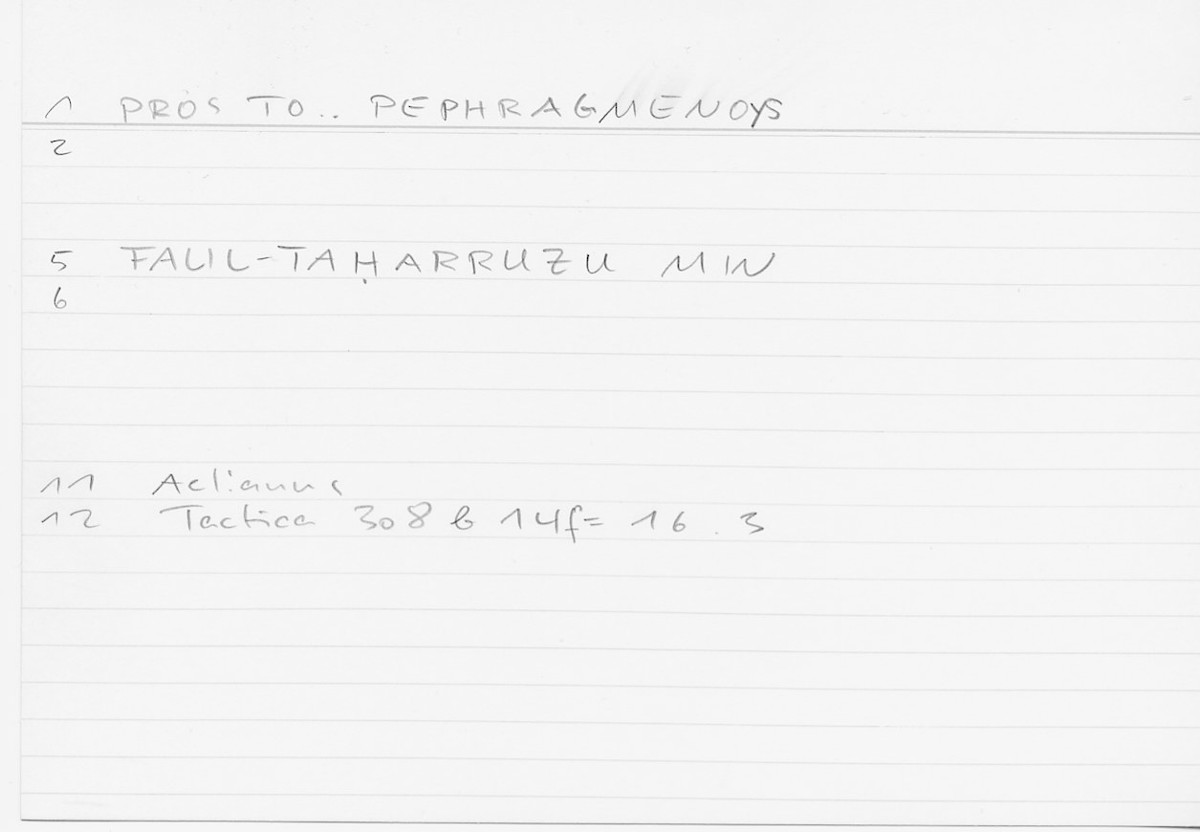 1 PROS TO.. PEPHRAGMENOYS
2
5 FALIL-TAḤARRUZU MIN
6
11 Aelianus
12 Tactica 308 b 14f= 16.3